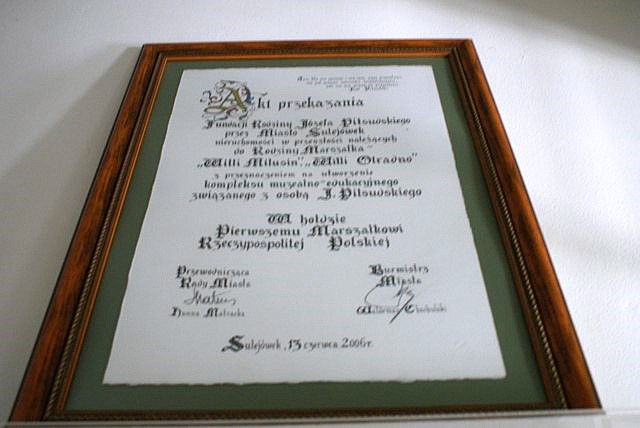 Akt przekazania
Fundacji Rodziny Józefa Piłsudskiego
przez Miasto Sulejówek
nieruchomości w przeszłości należących
do Rodziny Marszałka -
„Willi Milusin”, „Willi Otradno”
z przeznaczeniem na utworzenie
kompleksu muzealno-edukacyjnego
związanego z osobą J. Piłsudskiego
W hołdzie
Pierwszemu Marszałkowi
Rzeczypospolitej Polskiej
Przewodnicząca
Rady Miasta
Hanna Matracka
Burmistrz
Miasta
Waldemar Chachulski
Sulejówek, 13 czerwca 2006 r.